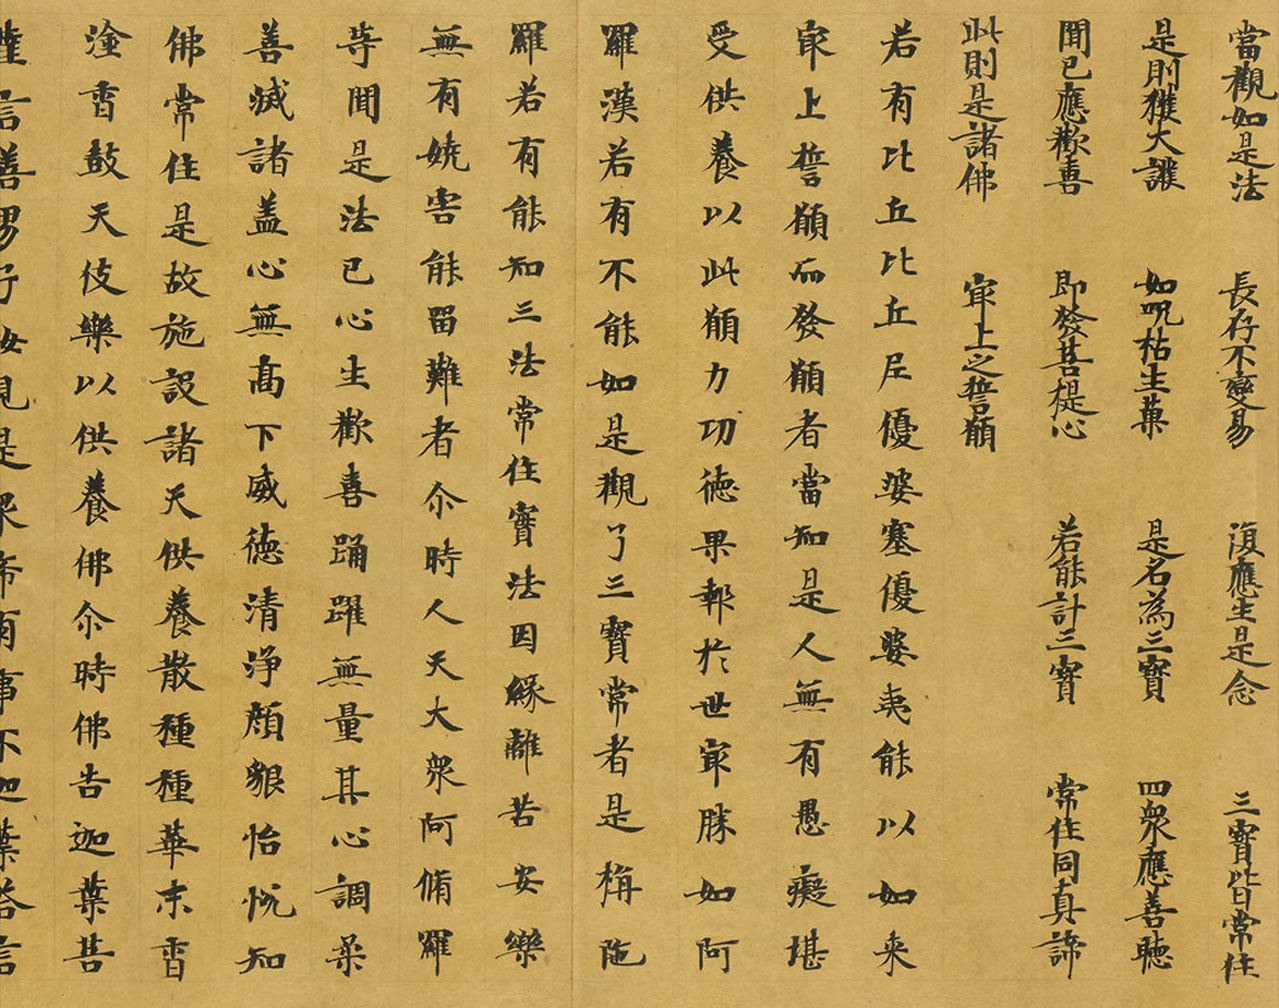 當觀如是法 長存不變易 復應生是念 三寶皆常住
是則獲大護 如呪枯生菓 是名為三寶 四衆應善聽
聞已應歡喜 即發菩提心 若能計三寶 常住同真諦
此則是諸佛 㝡上之誓願
若有比丘比丘尼優婆塞優婆夷能以如来
㝡上誓願而發願者當知是人無有愚癡堪
受供養以此願力功德果報於世㝡勝如阿
羅漢若有不能如是觀了三寶常者是栴陁
羅若有能知三法常住寶法因緣離苦安樂
無有嬈害能留難者尒時人天大衆阿脩羅
等聞是法已心生歡喜踊躍無量其心調柔
善滅諸蓋心無高下威德清淨顔貌怡悅知
佛常住是故施設諸天供養散種種華末香
塗香鼓天伎樂以供養佛尒時佛告迦葉菩
薩言善男子汝見是衆希有事不迦葉荅言